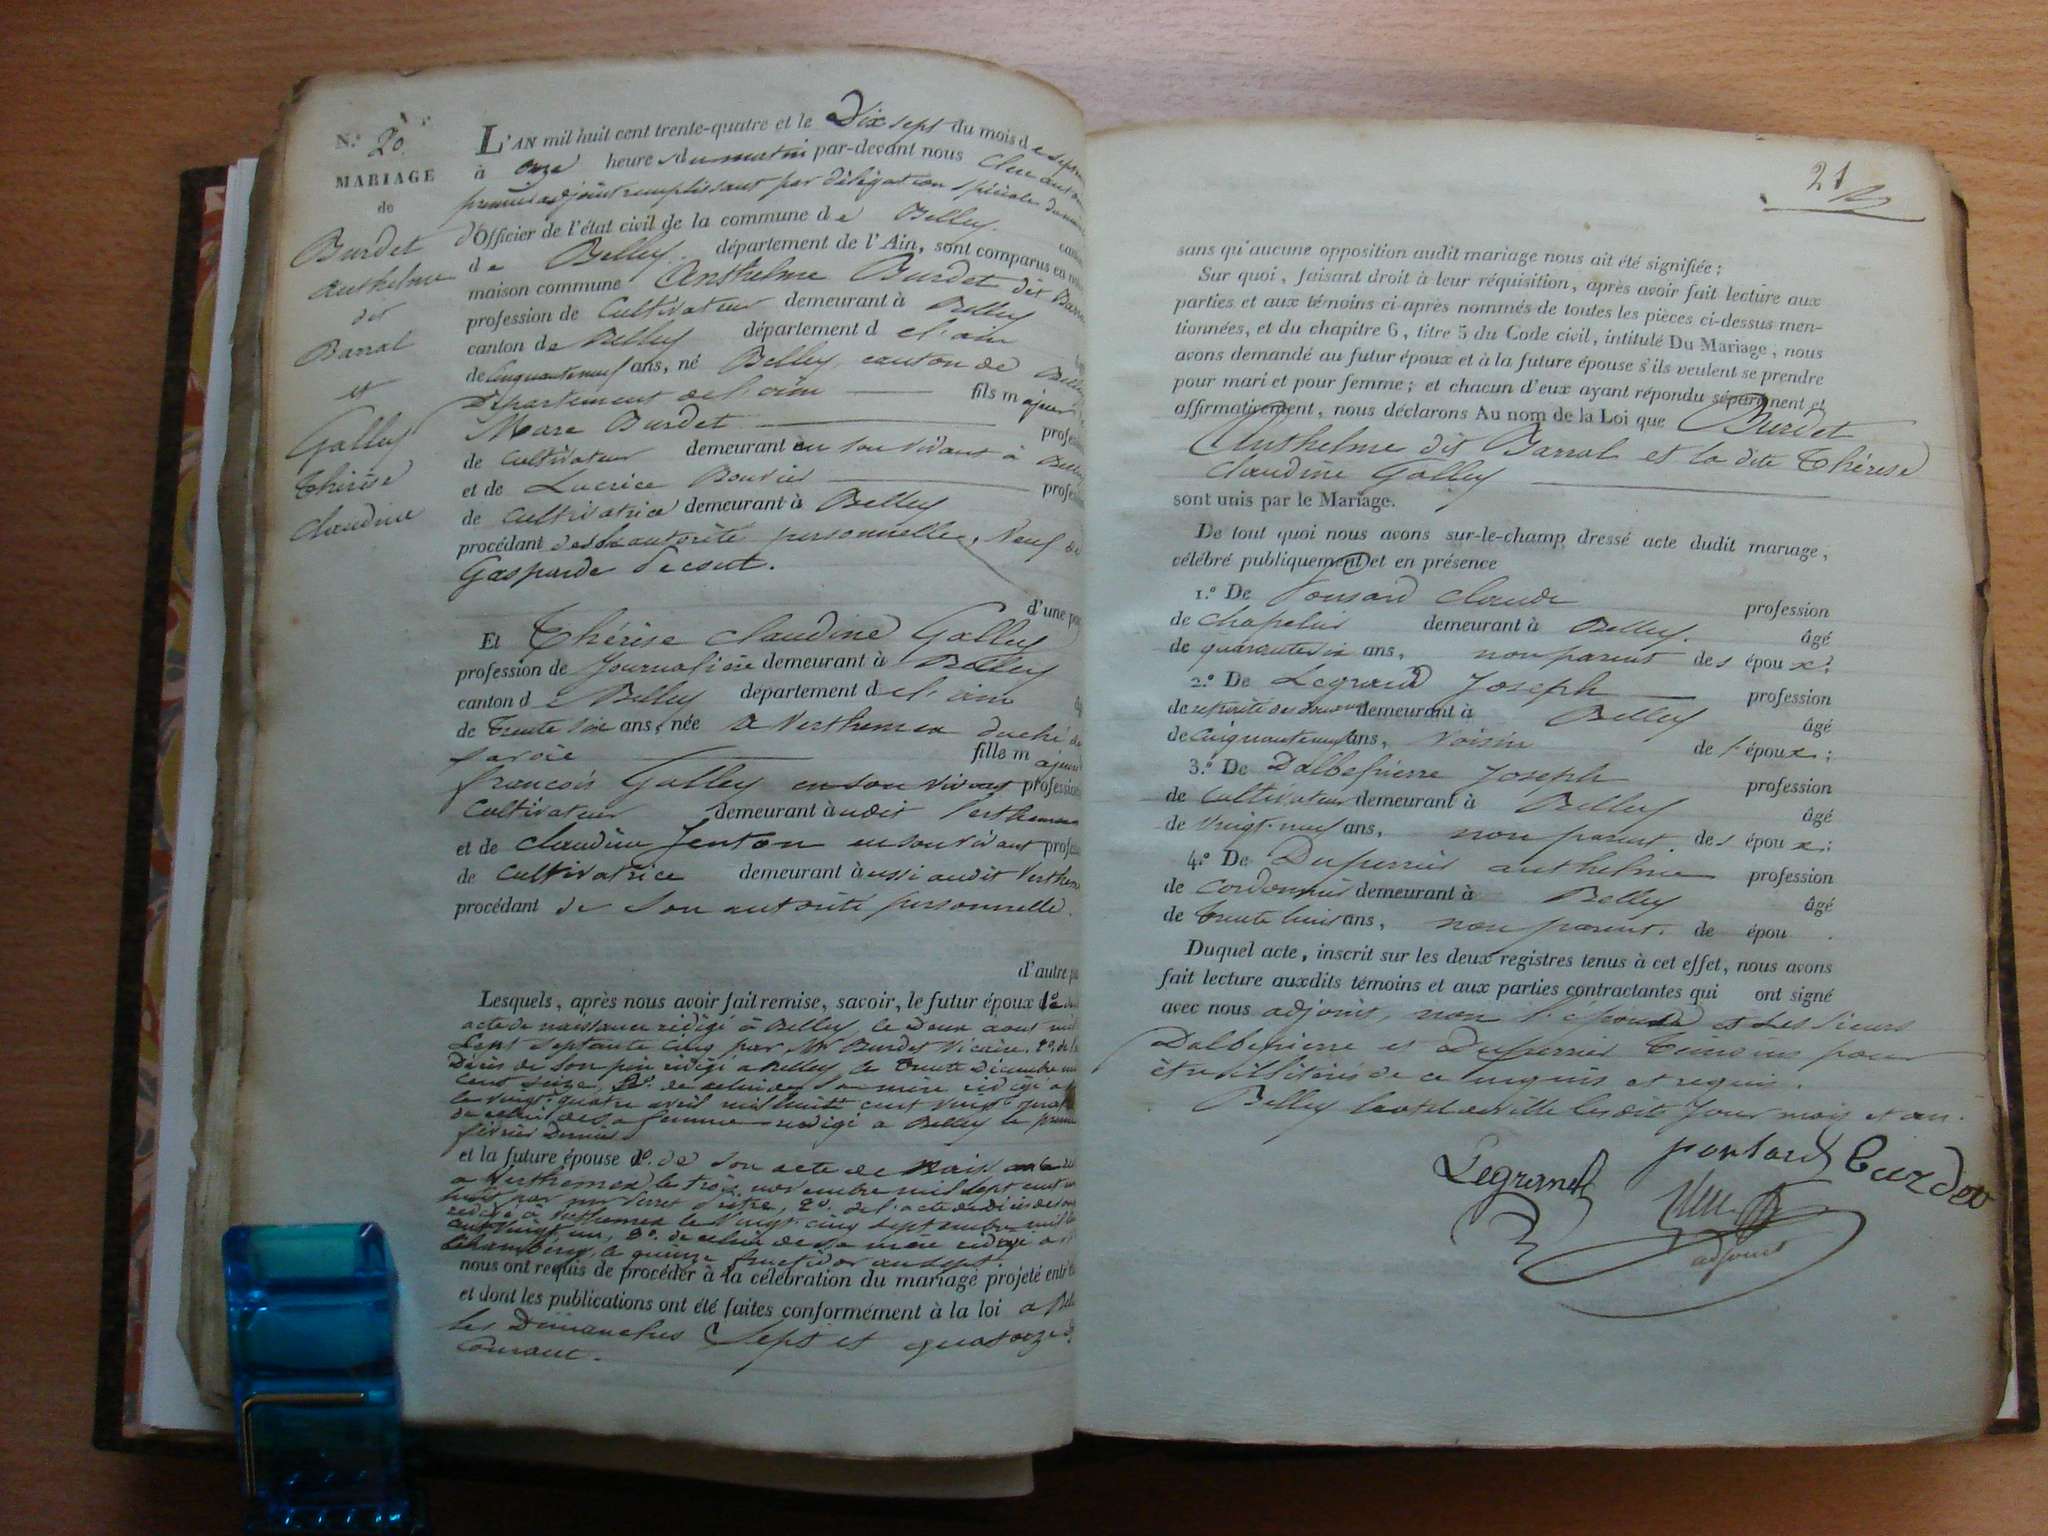 N.º 20
MARIAGE
de
Burdet
Anthelme
dit
Barral
et
Galley
Thérèse
Claudine
L'AN mil huit cent trente-quatre et le Dix sept du mois de
à onze heures du matin par-devant nous
premier adjoint remplissant par délégation spéciale
d'Officier de l'état civil de la commune de Belley
de Belley département de l'Ain, sont comparus en
maison commune Ansthelme Burdet dit
profession de Cultivateur demeurant à Belley
canton de Belley département de l'ain
de Cinquante neuf ans, né Belley, canton de
Département de l'ain fils majeur
Marc Burdet
de Cultivateur demeurant en son vivant à
et de Lucrèce Bouvier
de Cultivatrice demeurant à Belley
procédant de son autorité personnelle, Veuf de
Gasparde
d'une
Et Thérèse Claudine Galley
profession de Journalière demeurant à Belley
canton de Belley département de l'ain
de trente six ans, née à Verthemex duché de
Savoie fille majeure
françois Galley en son vivant profession
Cultivateur demeurant audit Verthemex
et de Claudine Jenton en son vivant
de Cultivatrice demeurant aussi audit
procédant de son autorité personnelle.
d'autre
Lesquels, après nous avoir fait remise, savoir, le futur époux 1º
acte de naissance rédigé à Belley, le Deux aout mil
Sept Septante cinq par Mr Burdet Vicaire, 2º. de
Décès de son père rédigé à Belley, le trente Décembre
cent seize, 3º. de celui de sa mère rédigé à
le vingt-quatre avril mil huit cent vingt
de celui de sa femme rédigé à Belley le
février Dernier
et la future épouse 1º. de son acte de
à Verthemex le trois novembre mil sept cent
huit par mr Prêtre, 2º. de l'acte de décès de son
rédigé à Verthemex le Vingt cinq septembre mil
cent vingt un, 3º. de celui de sa mère rédigé à
Chambéry, le quinze fructidor an sept.
nous ont requis de procéder à la célébration du mariage projeté
et dont les publications ont été faites conformément à la loi à
les Dimanches Sept et quatorze
Courant.
21
sans qu'aucune opposition audit mariage nous ait été signifiée ;
Sur quoi, faisant droit à leur réquisition, après avoir fait lecture aux
parties et aux témoins ci-après nommés de toutes les pièces ci-dessus men-
tionnées, et du chapitre 6, titre 5 du Code civil, intitulé Du Mariage, nous
avons demandé au futur époux et à la future épouse s'ils veulent se prendre
pour mari et pour femme ; et chacun d'eux ayant répondu séparément et
affirmativement, nous déclarons Au nom de la Loi que Burdet
Ansthelme dit Barral et la dite Thérèse
Claudine Galley
sont unis par le Mariage.
De tout quoi nous avons sur-le-champ dressé acte dudit mariage,
célébré publiquement et en présence
1.º De Ponsard Claude profession
de Chapelier demeurant à Belley. âgé
de quarante six ans, non parent des époux ;
2.º De Legrand Joseph profession
de retraité des douanes demeurant à Belley âgé
de Cinquante neuf ans, Voisin de l'époux ;
3.º De Dalbepierre Joseph profession
de Cultivateur demeurant à Belley âgé
de Vingt-neuf ans, non parent. des époux ;
4.º De Duperrier anthelme profession
de Cordonnier demeurant à Belley âgé
de trente huit ans, non parent. de épou .
Duquel acte, inscrit sur les deux registres tenus à cet effet, nous avons
fait lecture auxdits témoins et aux parties contractantes qui ont signé
avec nous adjoint, non l'épouse et les sieurs
Dalbepierre et Duperrier témoins pour
être illitérés de ce enquis et requis.
Belley hotel de ville lesdits Jour mois et an.
Legrand
ponsard
burdet
adjoint